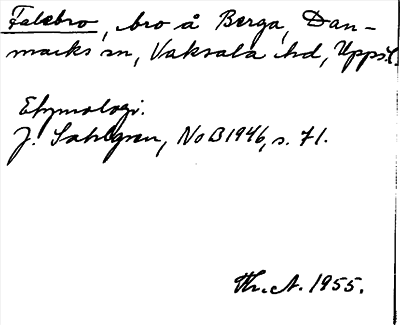 Falebro, bro å Berga, Dan-
marks sn, Vaksala hd, Uppsl.
Etymologi.
J. Sahlgren, NoB 1946, s. 71.
1955.